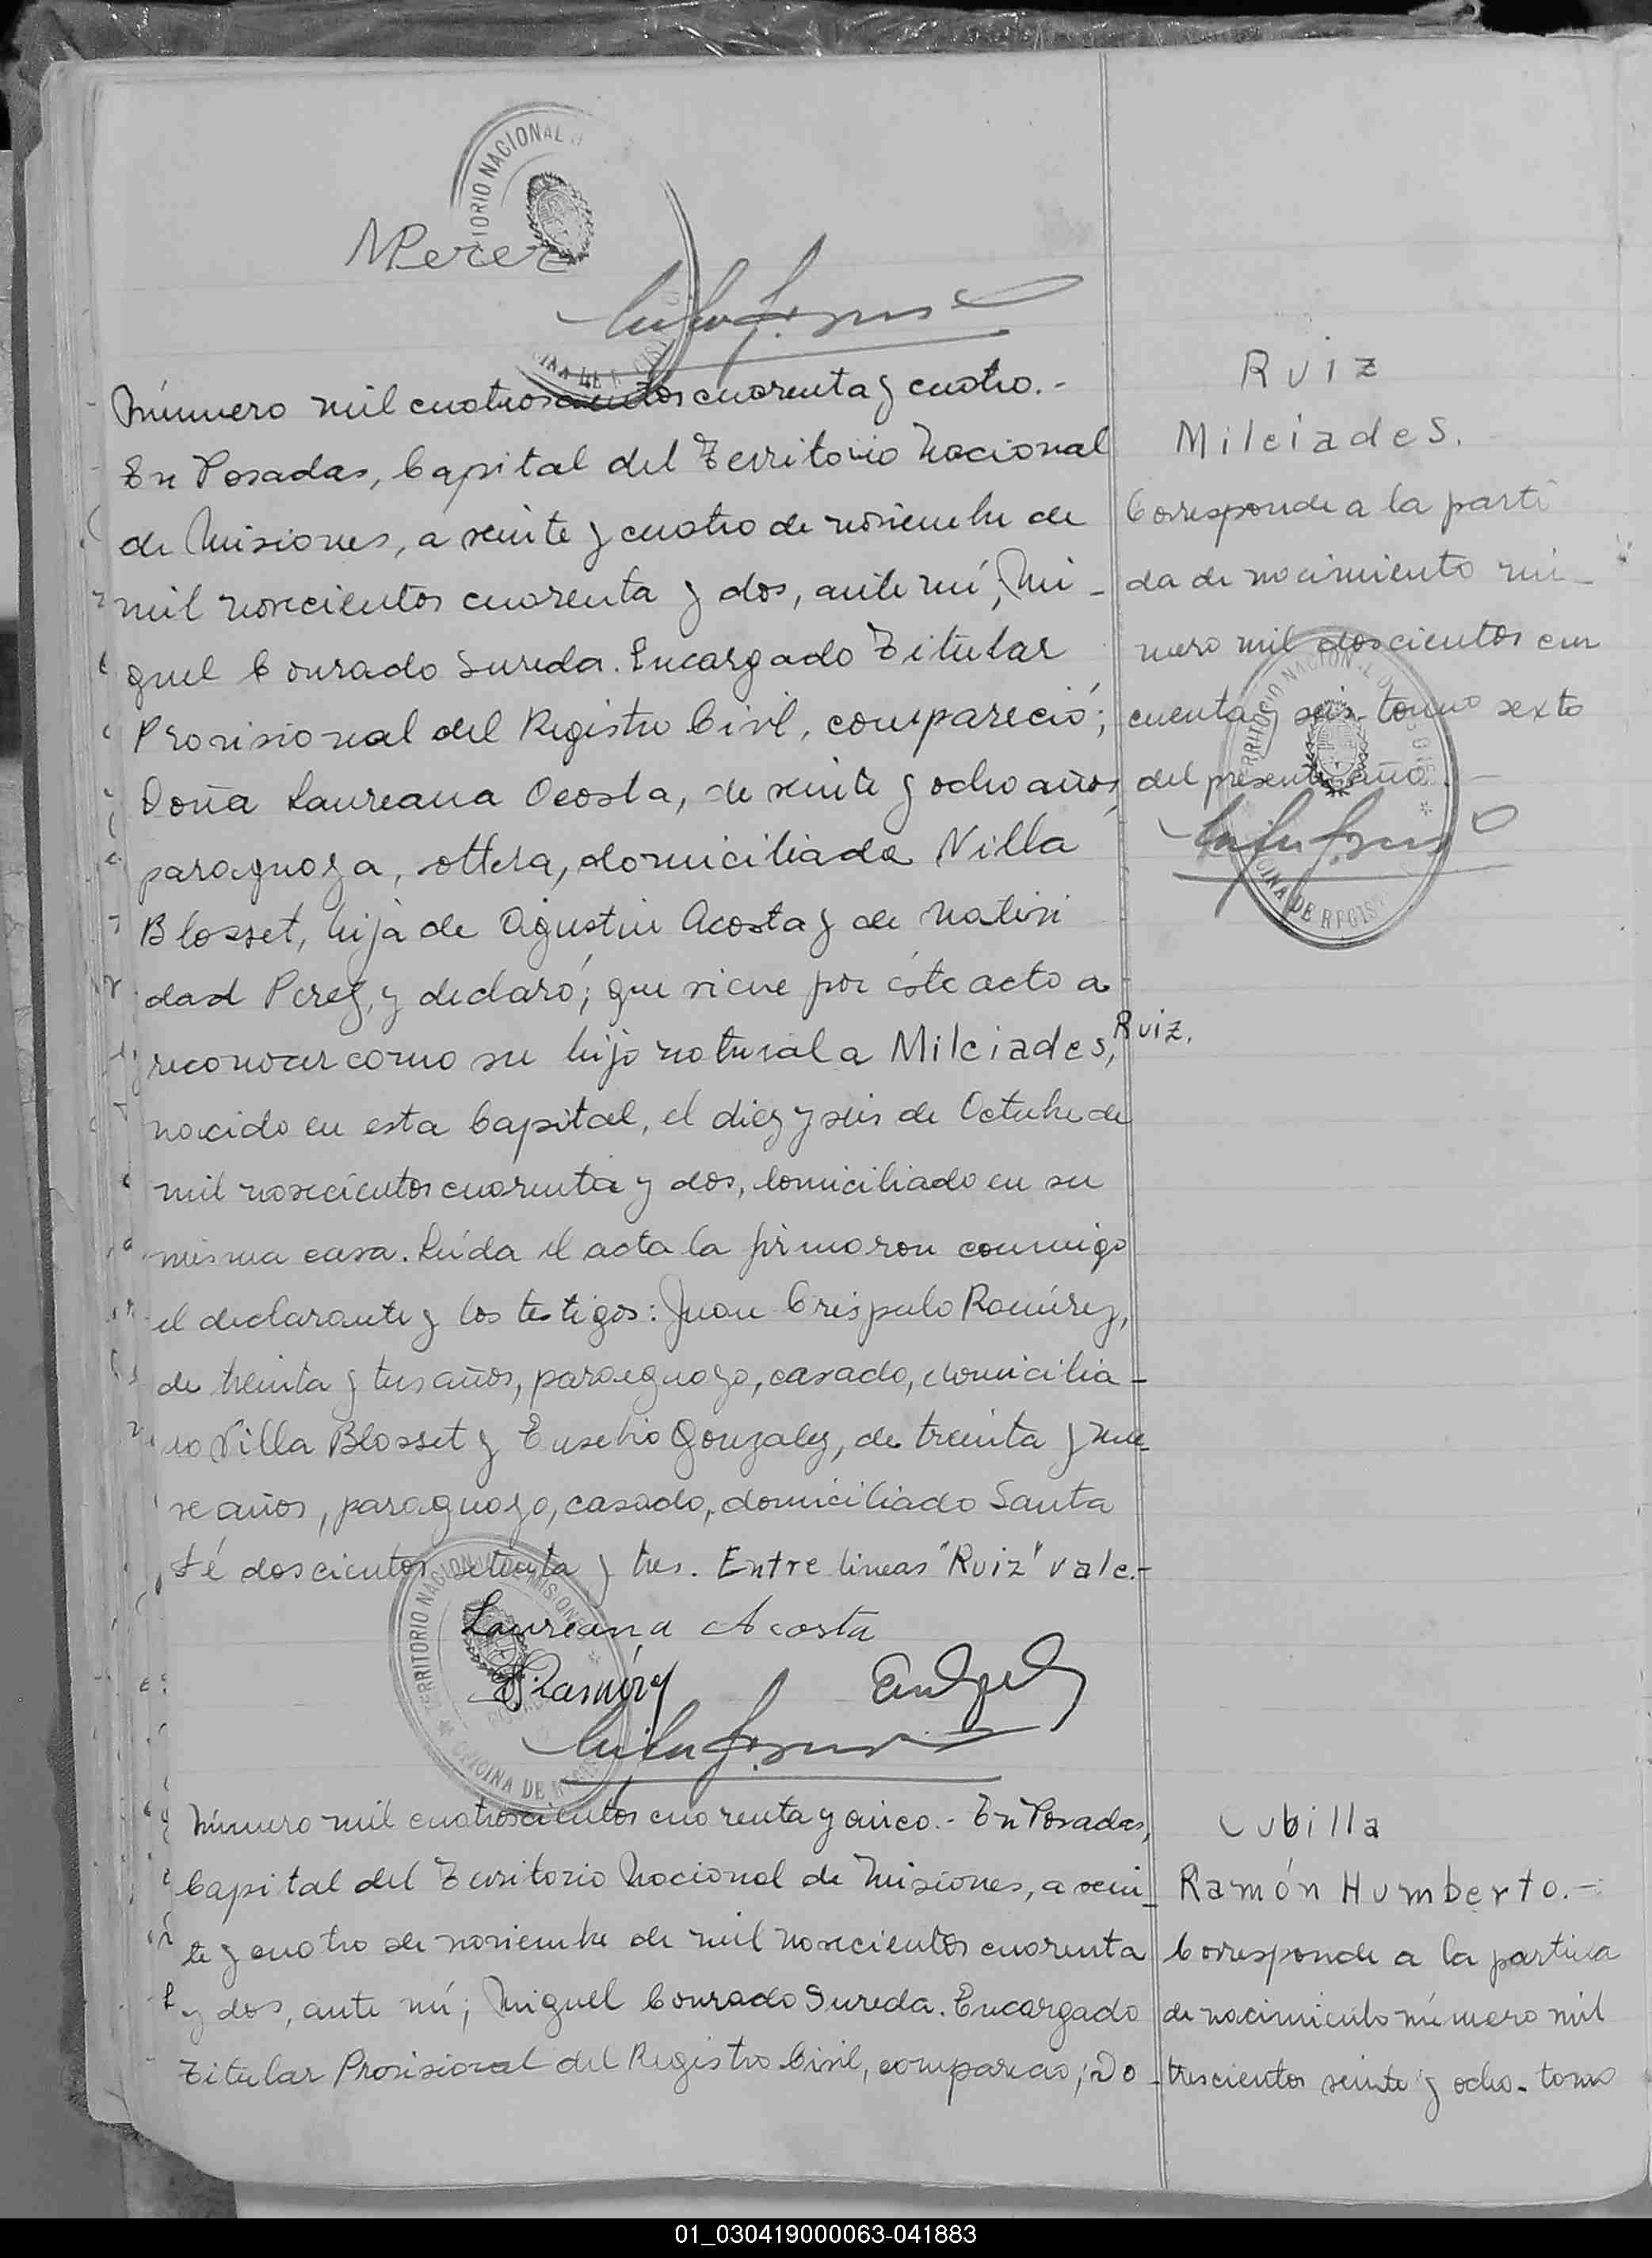 TORIO NACIONAL
MPerez
Número mil cuatroscientos cuarenta y cuatro.-
En Posadas, Capital del Territorio Nacional
de Misiones, a veinte y cuatro de noviembre de
mil novecientos cuarenta y dos, ante mí, Mi-
guel Conrado Sureda. Encargado Titular
Provisional del Registro Civil, compareció;
Doña Laureana Acosta, de veinte y ocho años,
paraguaya, soltera, domiciliada Villa
Blosset, hija de Agustín Acosta y de Nativi
dad Perez, y declaró; que viene por éste acto a
reconocer como su hijo natural a Milciades, Ruiz.
nacido en esta Capital, el diez y seis de Octubre de
mil novecientos cuarenta y dos, domiciliado en su
misma casa. Leída el acta la firmaron conmigo
el declarante y los testigos: Juan Crispulo Ramírez,
de treinta y tres años, paraguayo, casado, domicilia-
do Villa Blosset y Eusebio Gonzalez, de treinta y nue-
ve años, paraguayo, casado, domiciliado Santa
Fé doscientos setenta y tres. Entre lineas "Ruiz" vale.-
TERRITORIO NACIONAL DE MISIONES
OFICINA DE
Laureana Acosta
Ramírez
Ruiz
Milciades.
Corresponde a la parti
da de nacimiento nú-
mero mil doscientos cin
cuenta y seis- tomo sexto
del presente año.-
OFICINA DE REGIS
Número mil cuatroscientos cuarenta y cinco.- En Posadas,
Capital del Territorio Nacional de Misiones, a vein-
te y cuatro de noviembre de mil novecientos cuarenta
y dos, ante mí; Miguel Conrado Sureda. Encargado
Titular Provisional del Registro Civil, compareció; Do-
Cubilla
Ramón Humberto.-
Corresponde a la partida
de nacimiento número mil
trescientos veinte y ocho- tomo
01_030419000063-041883